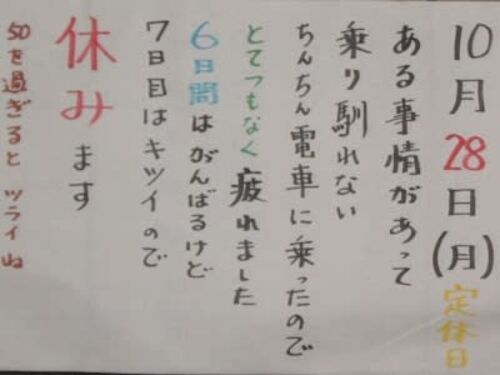 10月28日(月)定休日
ある事情があって
乗り馴れない
ちんちん電車に乗ったので
とてつもなく疲れました
6日間はがんばるけど
7日目はキツイので
休みます
50を過ぎるとツライね